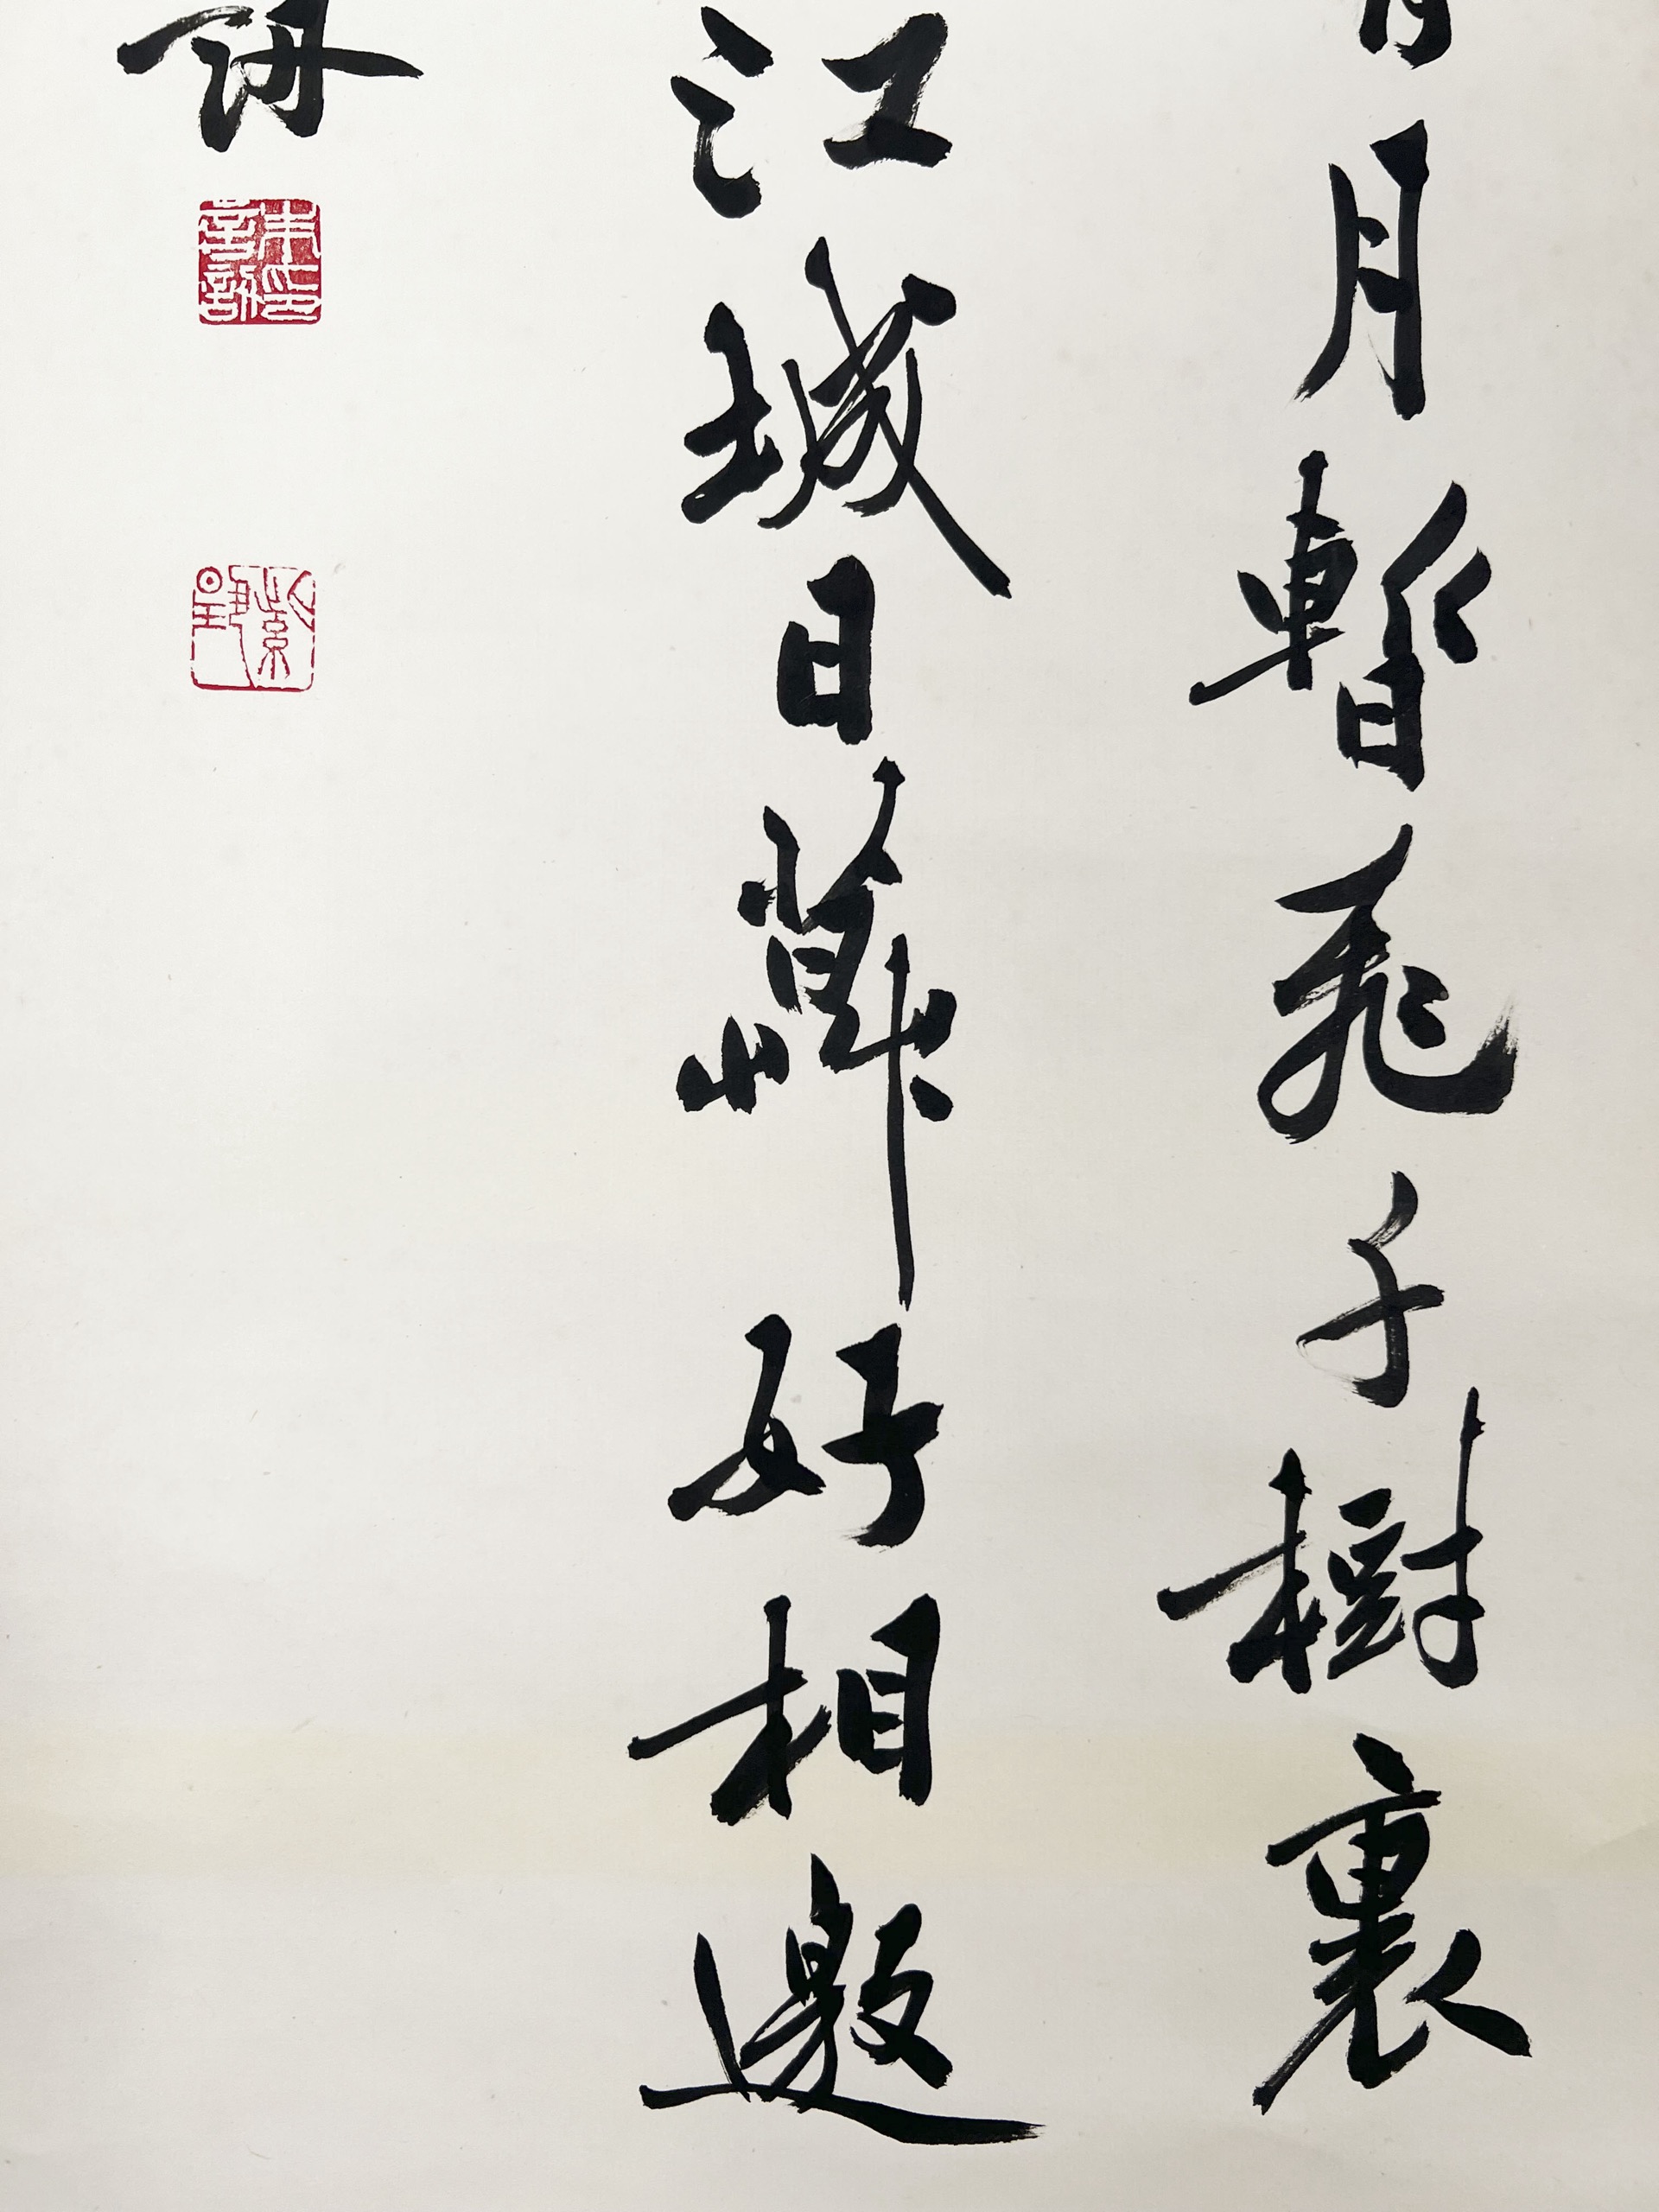 月暫飛千樹裏
江城日 好相邀